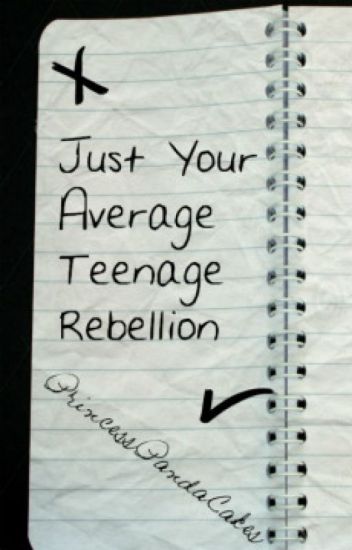 X
Just Your
Average
Teenage
Rebellion
✓
PrincessPandaCakes